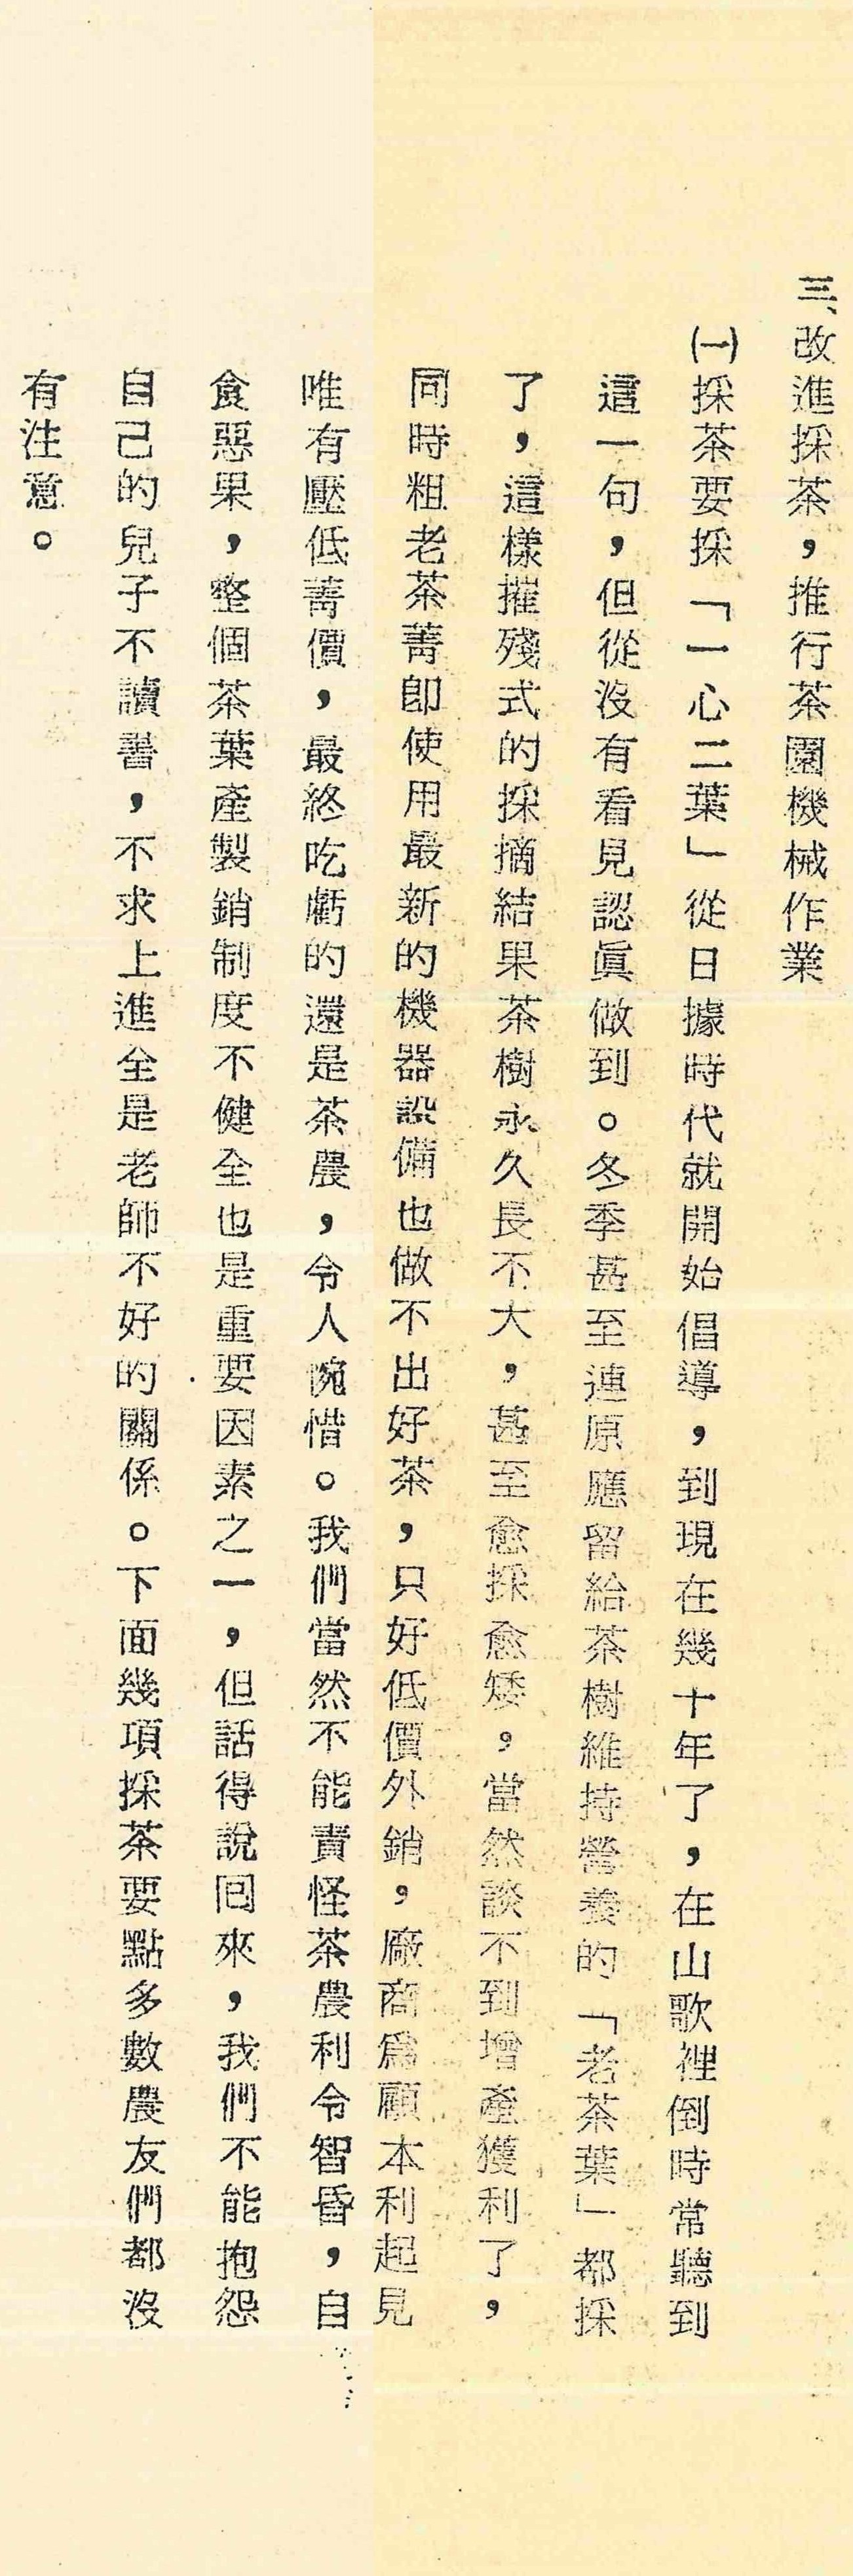 三、改進採茶，推行茶園機械作業
㈠採茶要採「一心二葉」從日據時代就開始倡導，到現在幾十年了，在山歌裡倒時常聽到
這一句，但從沒有看見認眞做到。冬季甚至連原應留給茶樹維持營養的「老茶葉」都採
了，這樣摧殘式的採摘結果茶樹永久長不大，甚至愈採愈矮。當然談不到增產獲利了，
同時粗老茶菁即使用最新的機器設備也做不出好茶，只好低價外銷。廠商爲顧本利起見
唯有壓低菁價，最終吃虧的還是茶農，令人惋惜。我們當然不能責怪茶農利令智昏，自
食惡果，整個茶葉產製銷制度不健全也是重要因素之一，但話得說回來，我們不能抱怨
自己的兒子不讀書，不求上進全是老師不好的關係。下面幾項採茶要點多數農友們都沒
有注意。